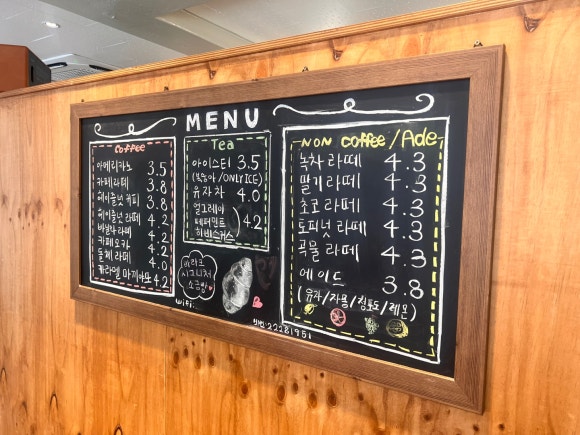 MENU
Coffee
아메리카노 3.5
카페라떼 3.8
헤이즐넛 커피 3.8
헤이즐넛 라떼 4.2
바닐라 라떼 4.2
카페모카 4.2
돌체 라떼 4.0
카라멜 마끼아또 4.2
Tea
아이스티 3.5
(복숭아/ONLY ICE)
유자차 4.0
얼그레이
페퍼민트 ) 4.2
히비스커스
파리크
시그니처
소금빵
wifi:
비번:22281951
NON coffee/Ade
녹차 라떼 4.3
딸기 라떼 4.3
초코 라떼 4.3
토피넛 라떼 4.3
곡물 라떼 4.3
에이드 3.8
(유자/자몽/청포도/레몬)